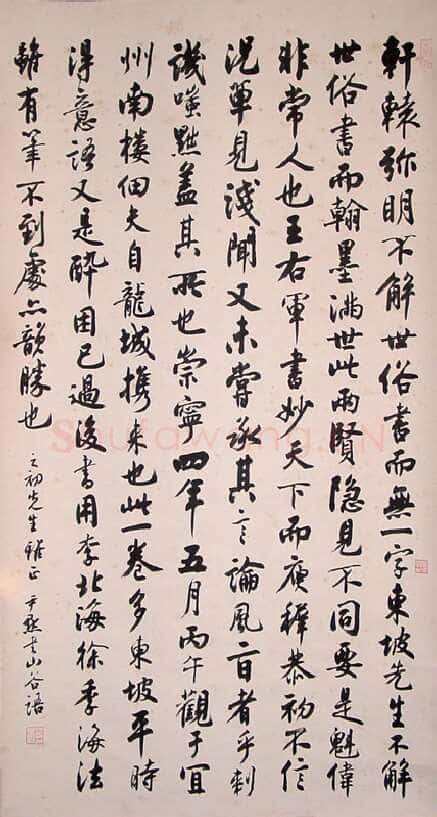 軒轅弥明不解世俗書而無一字東坡先生不解
世俗書而翰墨満世此兩賢隐見不同要是魁偉
非常人也王右軍書妙天下而庾稺恭初不信
况單見淺聞又未嘗承其言論風旨者乎刺
譏嗤點盖其所也崇寧四年五月丙午觀于宜
州南樓佃夫自龍城携来也此一卷多東坡平時
淂意語又是醉困已過後書用李北海徐季海法
雖有筆不到處亦韻勝也
之初先生雅正 尹默書山谷語